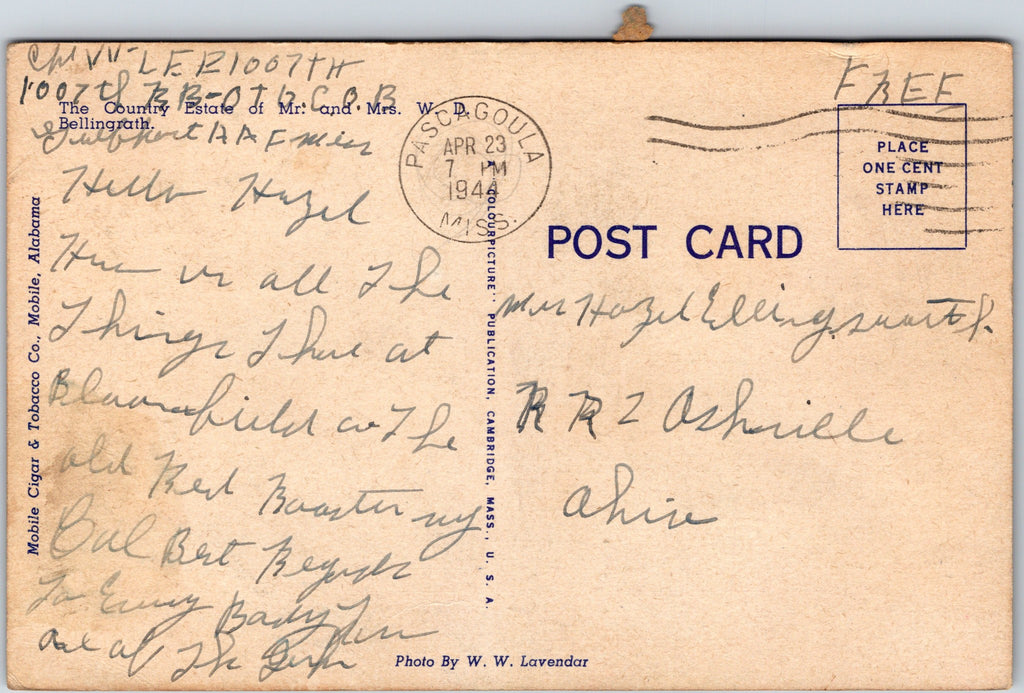 LEE 1007TH
1007th BB-OTD.C.O.B
The Country Estate of Mr. and Mrs. W. D.
Bellingrath.
Gulfport AAF Miss
Hello Hazel
How is all The
Things There at
Bloomfield is The
old Red Rooster
Best Regards
To Every Body
one of The
Mobile Cigar & Tobacco Co., Mobile, Alabama
PASCAGOULA
APR 23
7 PM
1944
MISS.
"COLOURPICTURE" PUBLICATION, CAMBRIDGE, MASS., U. S. A.
FREE
PLACE
ONE CENT
STAMP
HERE
POST CARD
Mrs Hazel Ellingsworth
R R 2 Ashville
Ohio
Photo By W. W. Lavendar